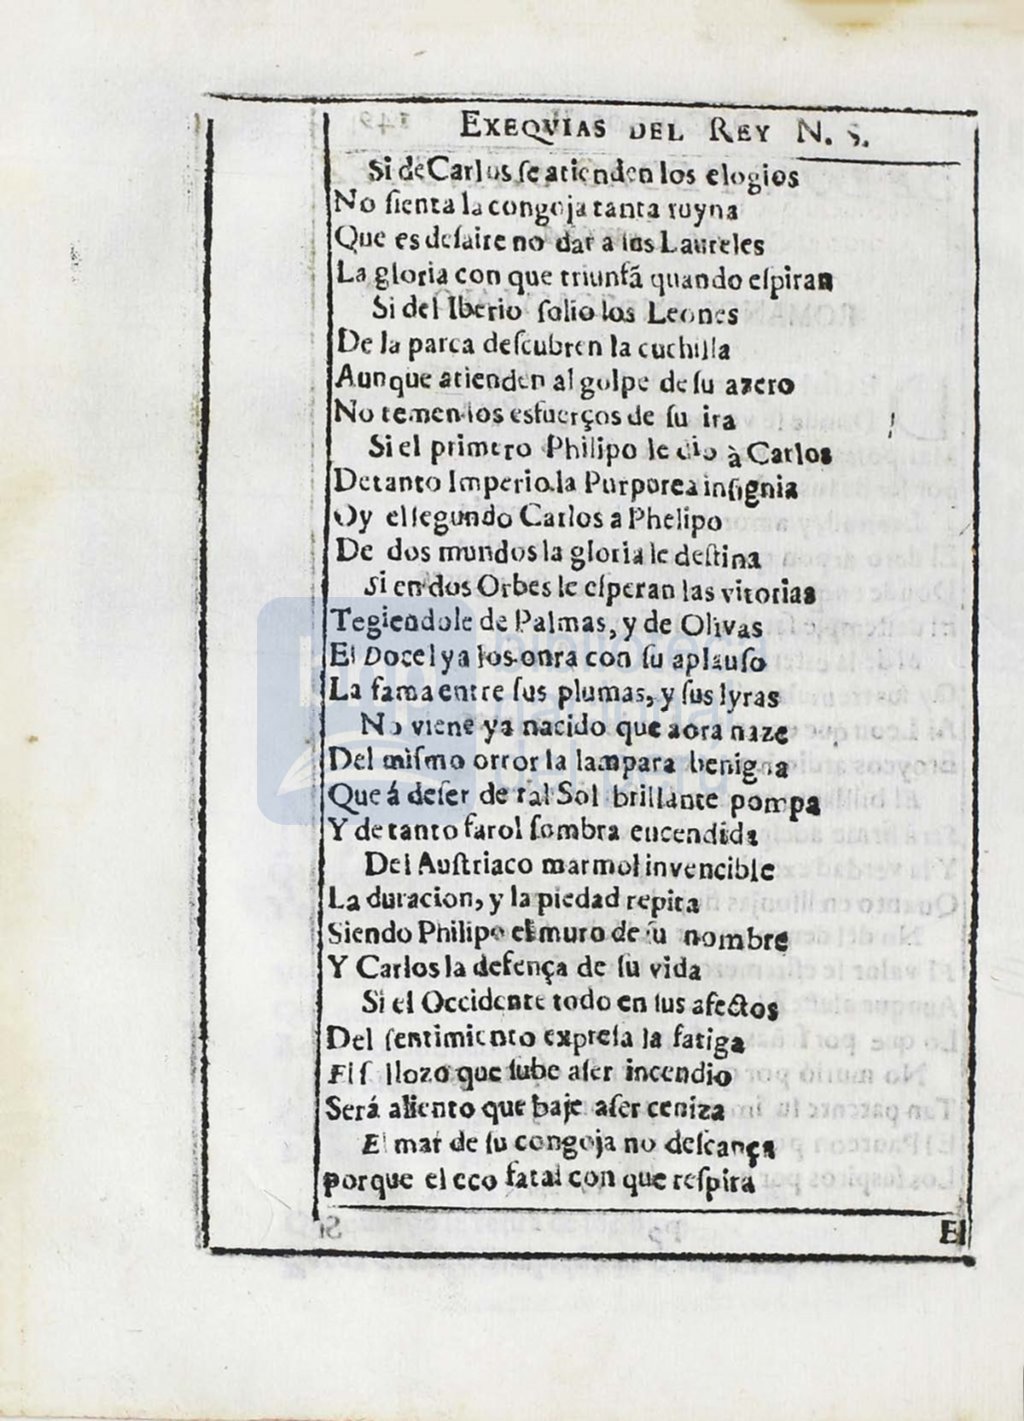 EXEQVIAS DEL REY N. S.
Si de Carlos ſe atienden los elogios
No ſienta la congoja tanta ruyna
Que es deſaire no dar a los Laureles
La gloria con que triunfã quando eſpiran
Si del Iberio ſolio los Leones
De la parca deſcubren la cuchilla
Aunque atienden al golpe de ſu azero
No temen los esfuerços de ſu ira
Si el primero Philipo le dio à Carlos
De tanto Imperio la Purporea inſignia
Oy el ſegundo Carlos a Phelipo
De dos mundos la gloria le deſtina
Si en dos Orbes le eſperan las vitorias
Tegiendole de Palmas, y de Olivas
El Docel ya los onra con ſu aplauſo
La fama entre ſus plumas, y ſus lyras
No viene ya nacido que aora naze
Del miſmo orror la lampara benigna
Que á deſer de tal Sol brillante pompa
Y de tanto farol ſombra encendida
Del Auſtriaco marmol invencible
La duracion, y la piedad repita
Siendo Philipo el muro de ſu nombre
Y Carlos la defença de ſu vida
Si el Occidente todo en ſus afectos
Del ſentimiento expreſa la fatiga
El ſ llozo que ſube aſer incendio
Será aliento que baje aſer ceniza
El mar de ſu congoja no deſcança
porque el eco fatal con que reſpira
El